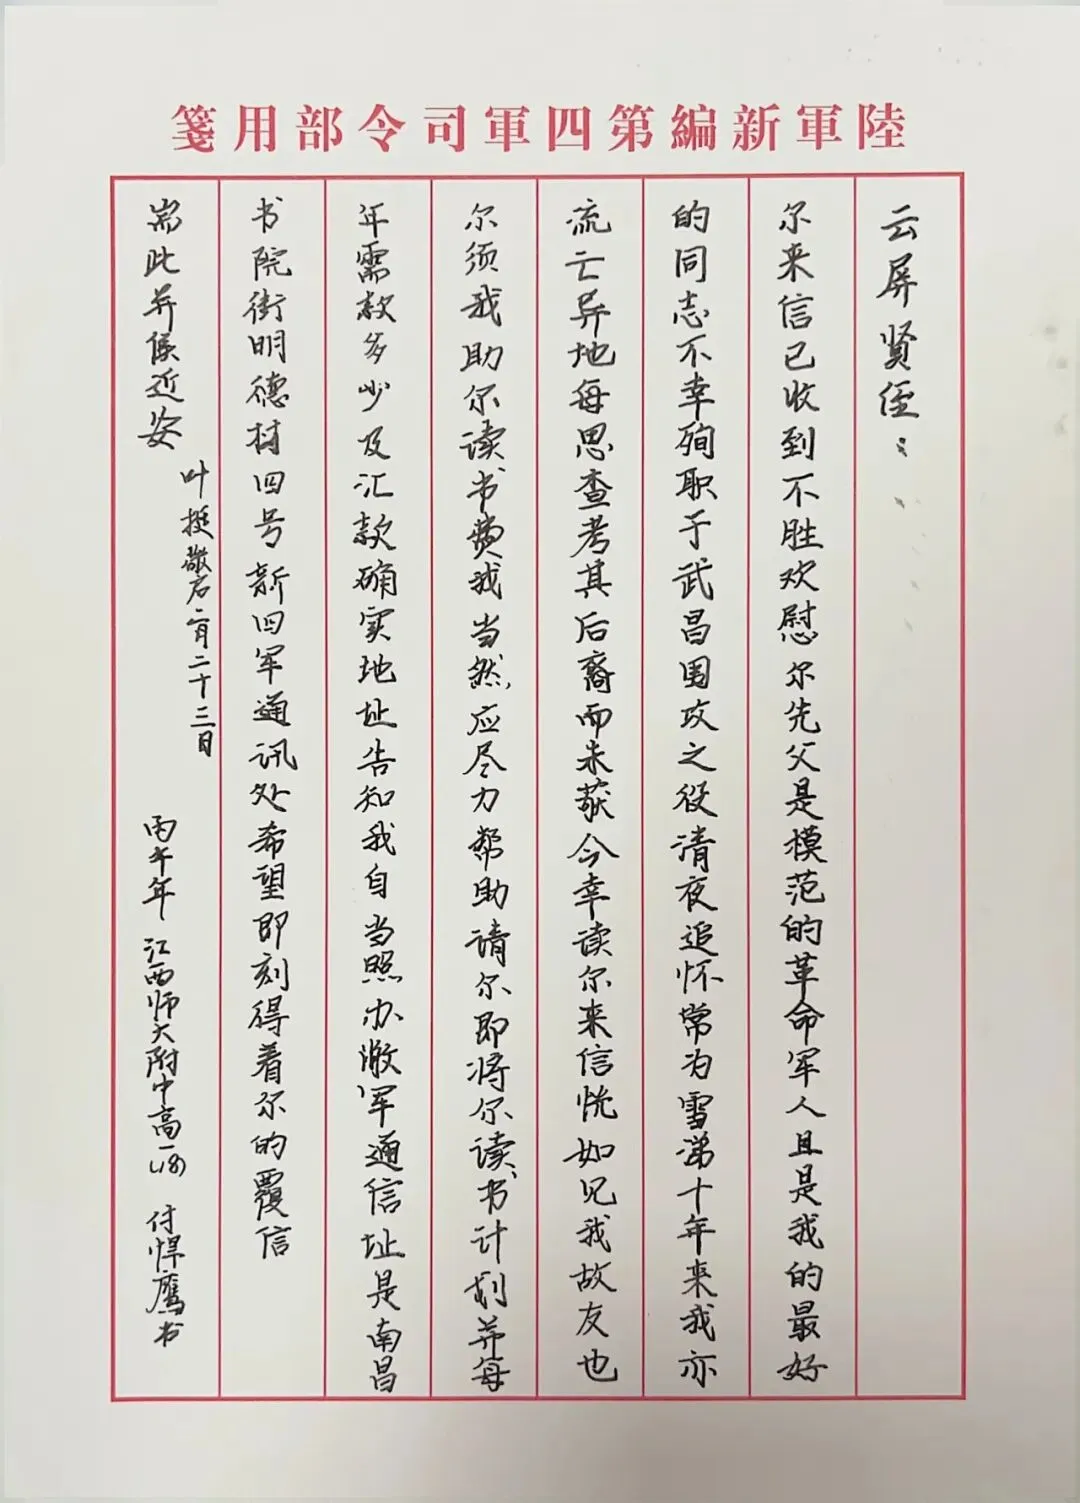 陸軍新編第四軍司令部用箋
云屏贤侄：
尔来信已收到不胜欢慰尔先父是模范的革命军人且是我的最好
的同志不幸殉职于武昌围攻之役清夜追怀常为雪涕十年来我亦
流亡异地每思查考其后裔而未获今幸读尔来信恍如见我故友也
尔须我助尔读书费我当然应尽力帮助请尔即将尔读书计划并每
年需款多少及汇款确实地址告知我自当照办敝军通信址是南昌
书院街明德村四号新四军通讯处希望即刻得着尔的覆信
耑此并候近安
叶挺敬启二月二十三日
丙午年 江西师大附中高一(18) 付悍鹰书